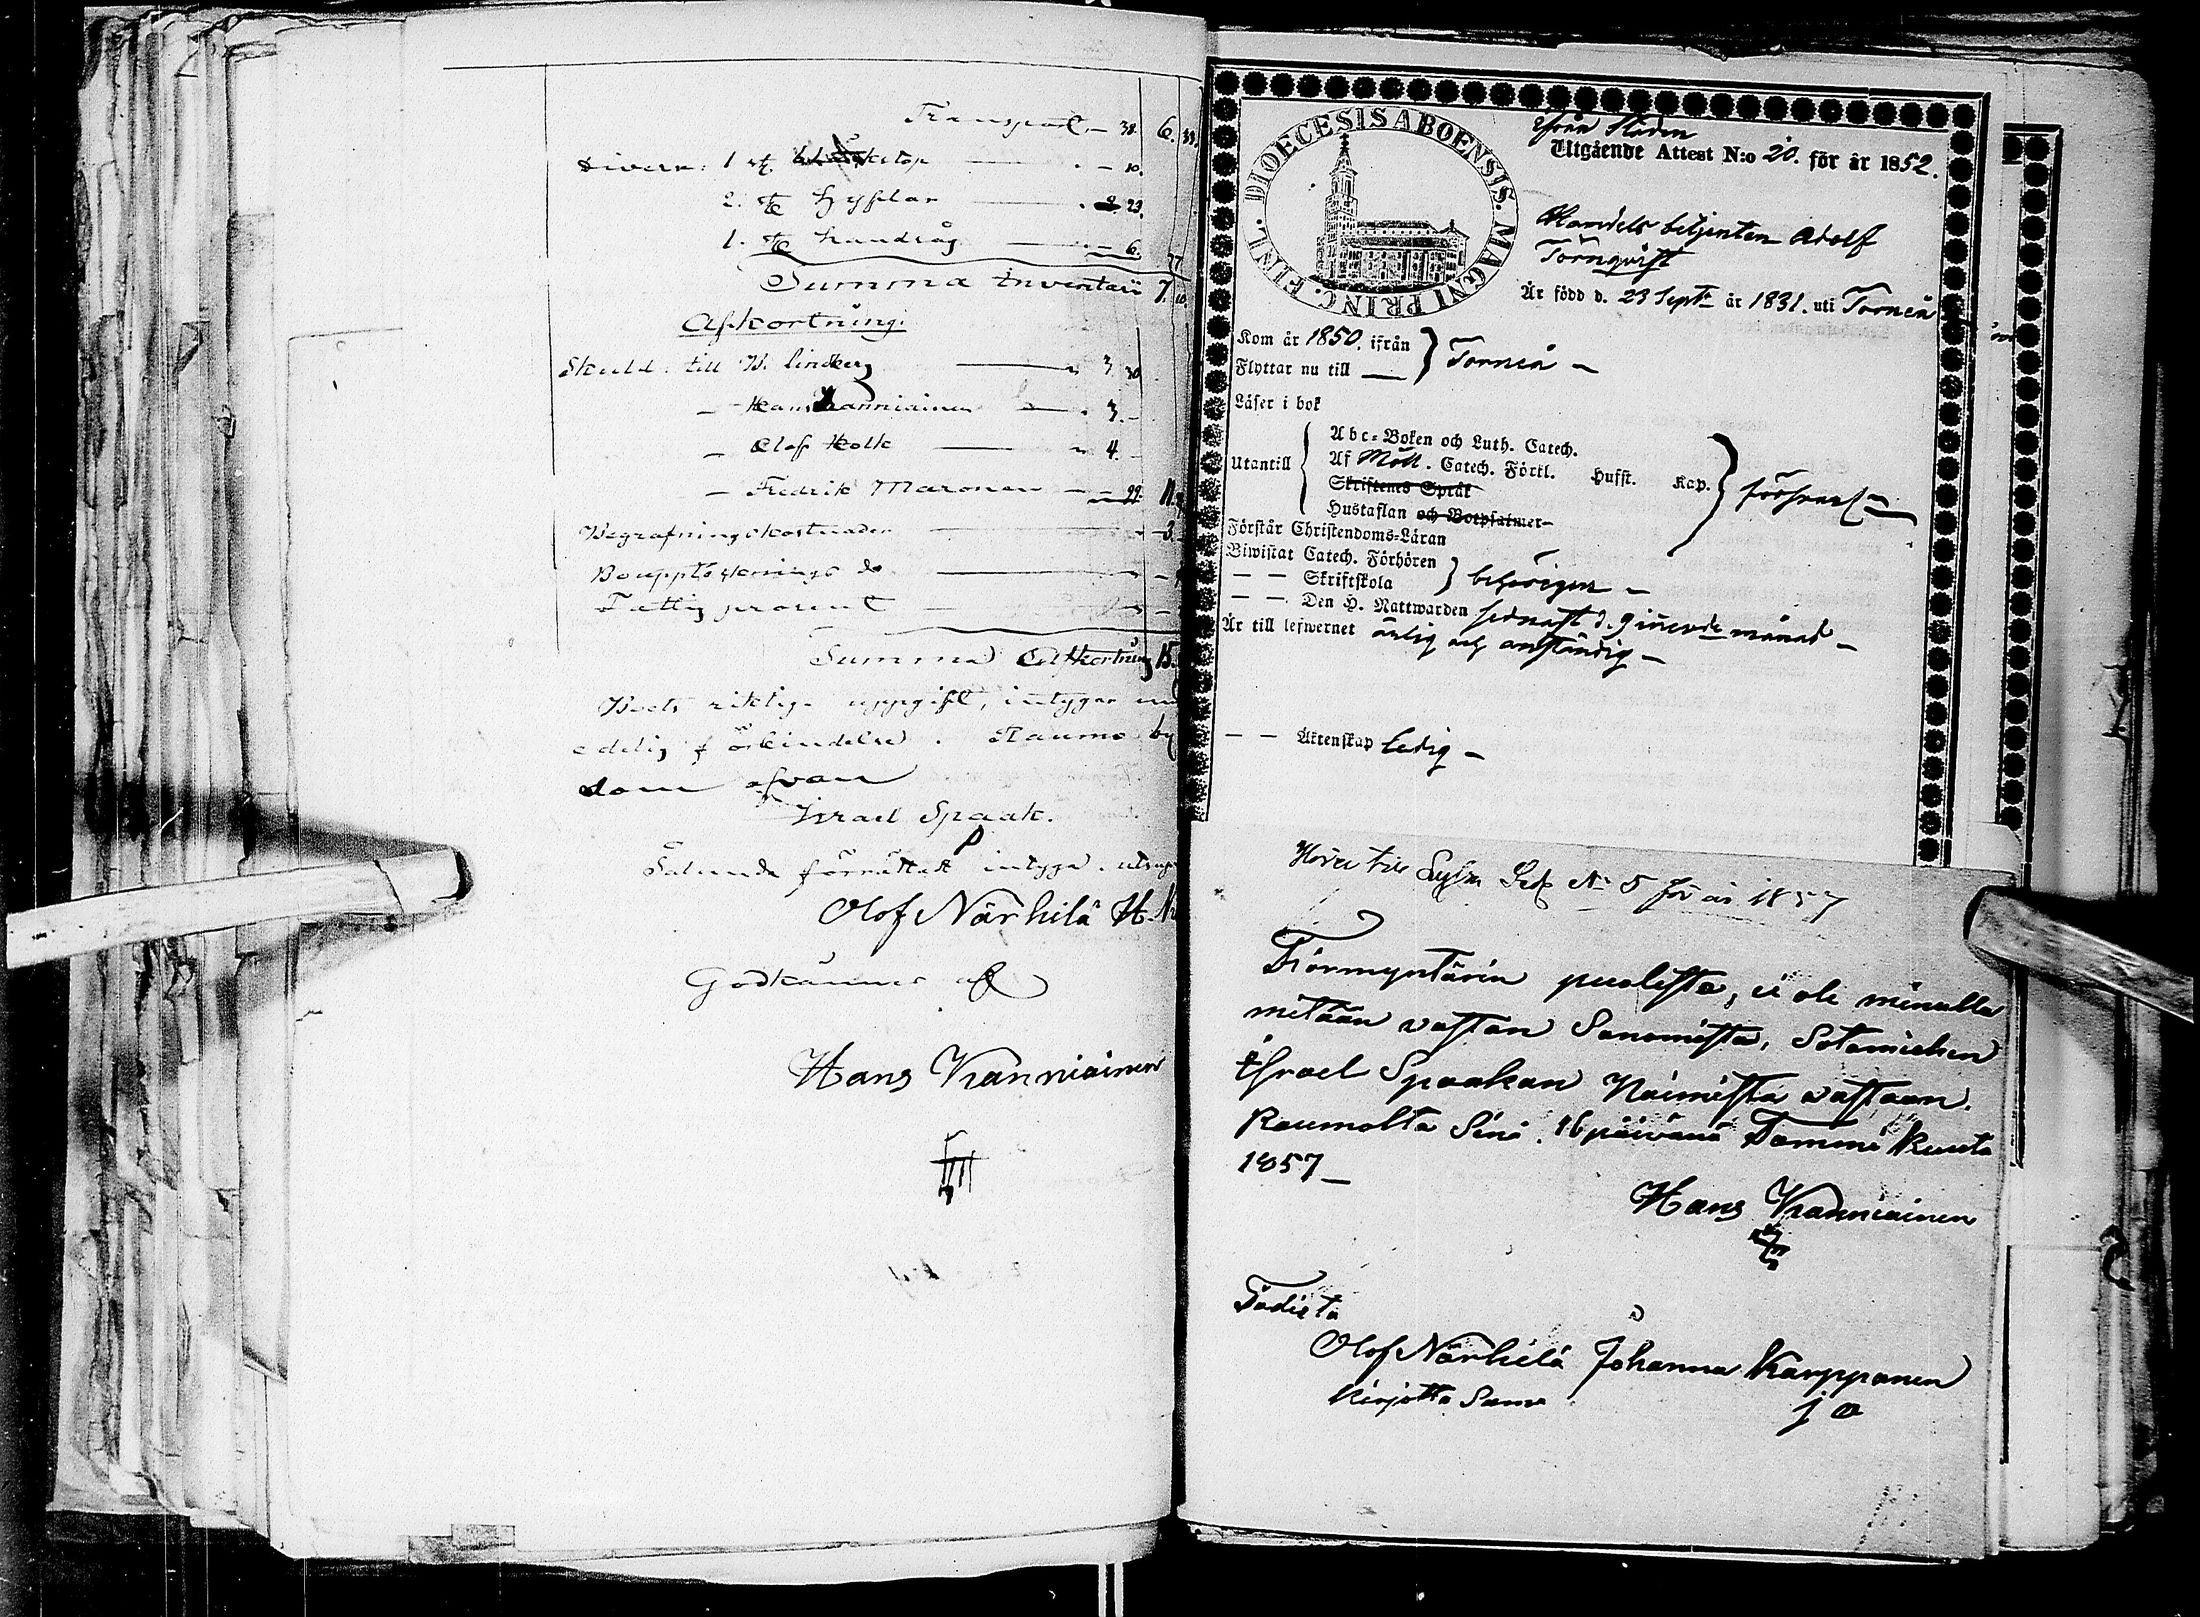 Transport — 38. 6. 33.
Divers: 1 st. — 10.
2. st hyflar — 23.
1. st handsåg — 6. 77
Summa Inventarii 7. 10
Afkortning:
Skuld till H. Lindberg — 3 30
— Hans Kanniainen — 3. —
— Olof Holk — 4. —
— Fredrik Maronen — 22. 11.
Begrafningskostnader — 3.
Bouppteknings do —
Fattig procent —
Summa Afkortning 15.
riktiga uppgift, intygar
edelig förbindelse. Raumo by
dom ofvan
Israel Spaak.
Sålunda förrättat intyga.
Olof Närhilä H. N
Godkännes af
Hans Kanniainen
DIOECESIS ABOENSIS. MAGNI PRINC. FINL.
från Staden
Utgående Attest N:o 20. för år 1852.
Handels betjenten Adolf
Törnqvist
Är född d. 23 Sept. år 1831. uti Torneå
Kom år 1850. ifrån } Torneå —
Flyttar nu till —
Läser i bok
Abc-Boken och Luth. Catech.
Utantill { Af Möll. Catech. Förkl. Husst. Kap. } försvarl —
Skriftens Språk
Hustaflan och Botpsalmer
Förstår Christendoms-Läran
Biwistat Catech. Förhören
— — Skriftskola } behörigen —
— — Den H. Nattwarden sednast d. 9 månad —
Är till lefwernet ärlig och anständig —
— — Äktenskap ledig —
Hörer till Lysn. Sed. N:o 5 för år 1857
Förmyntärin puolesta, ei ole minulla
mitään vastan Sanomista, Sotamiehen
Israel Spaakan Naimista vastaan.
Raumolta Sinä. 16 päivänä Tammi Kuuta
1857 —
Hans Kanniainen
Todista
Olof Närhilä Johanna Karppanen
Kirjotta Sama